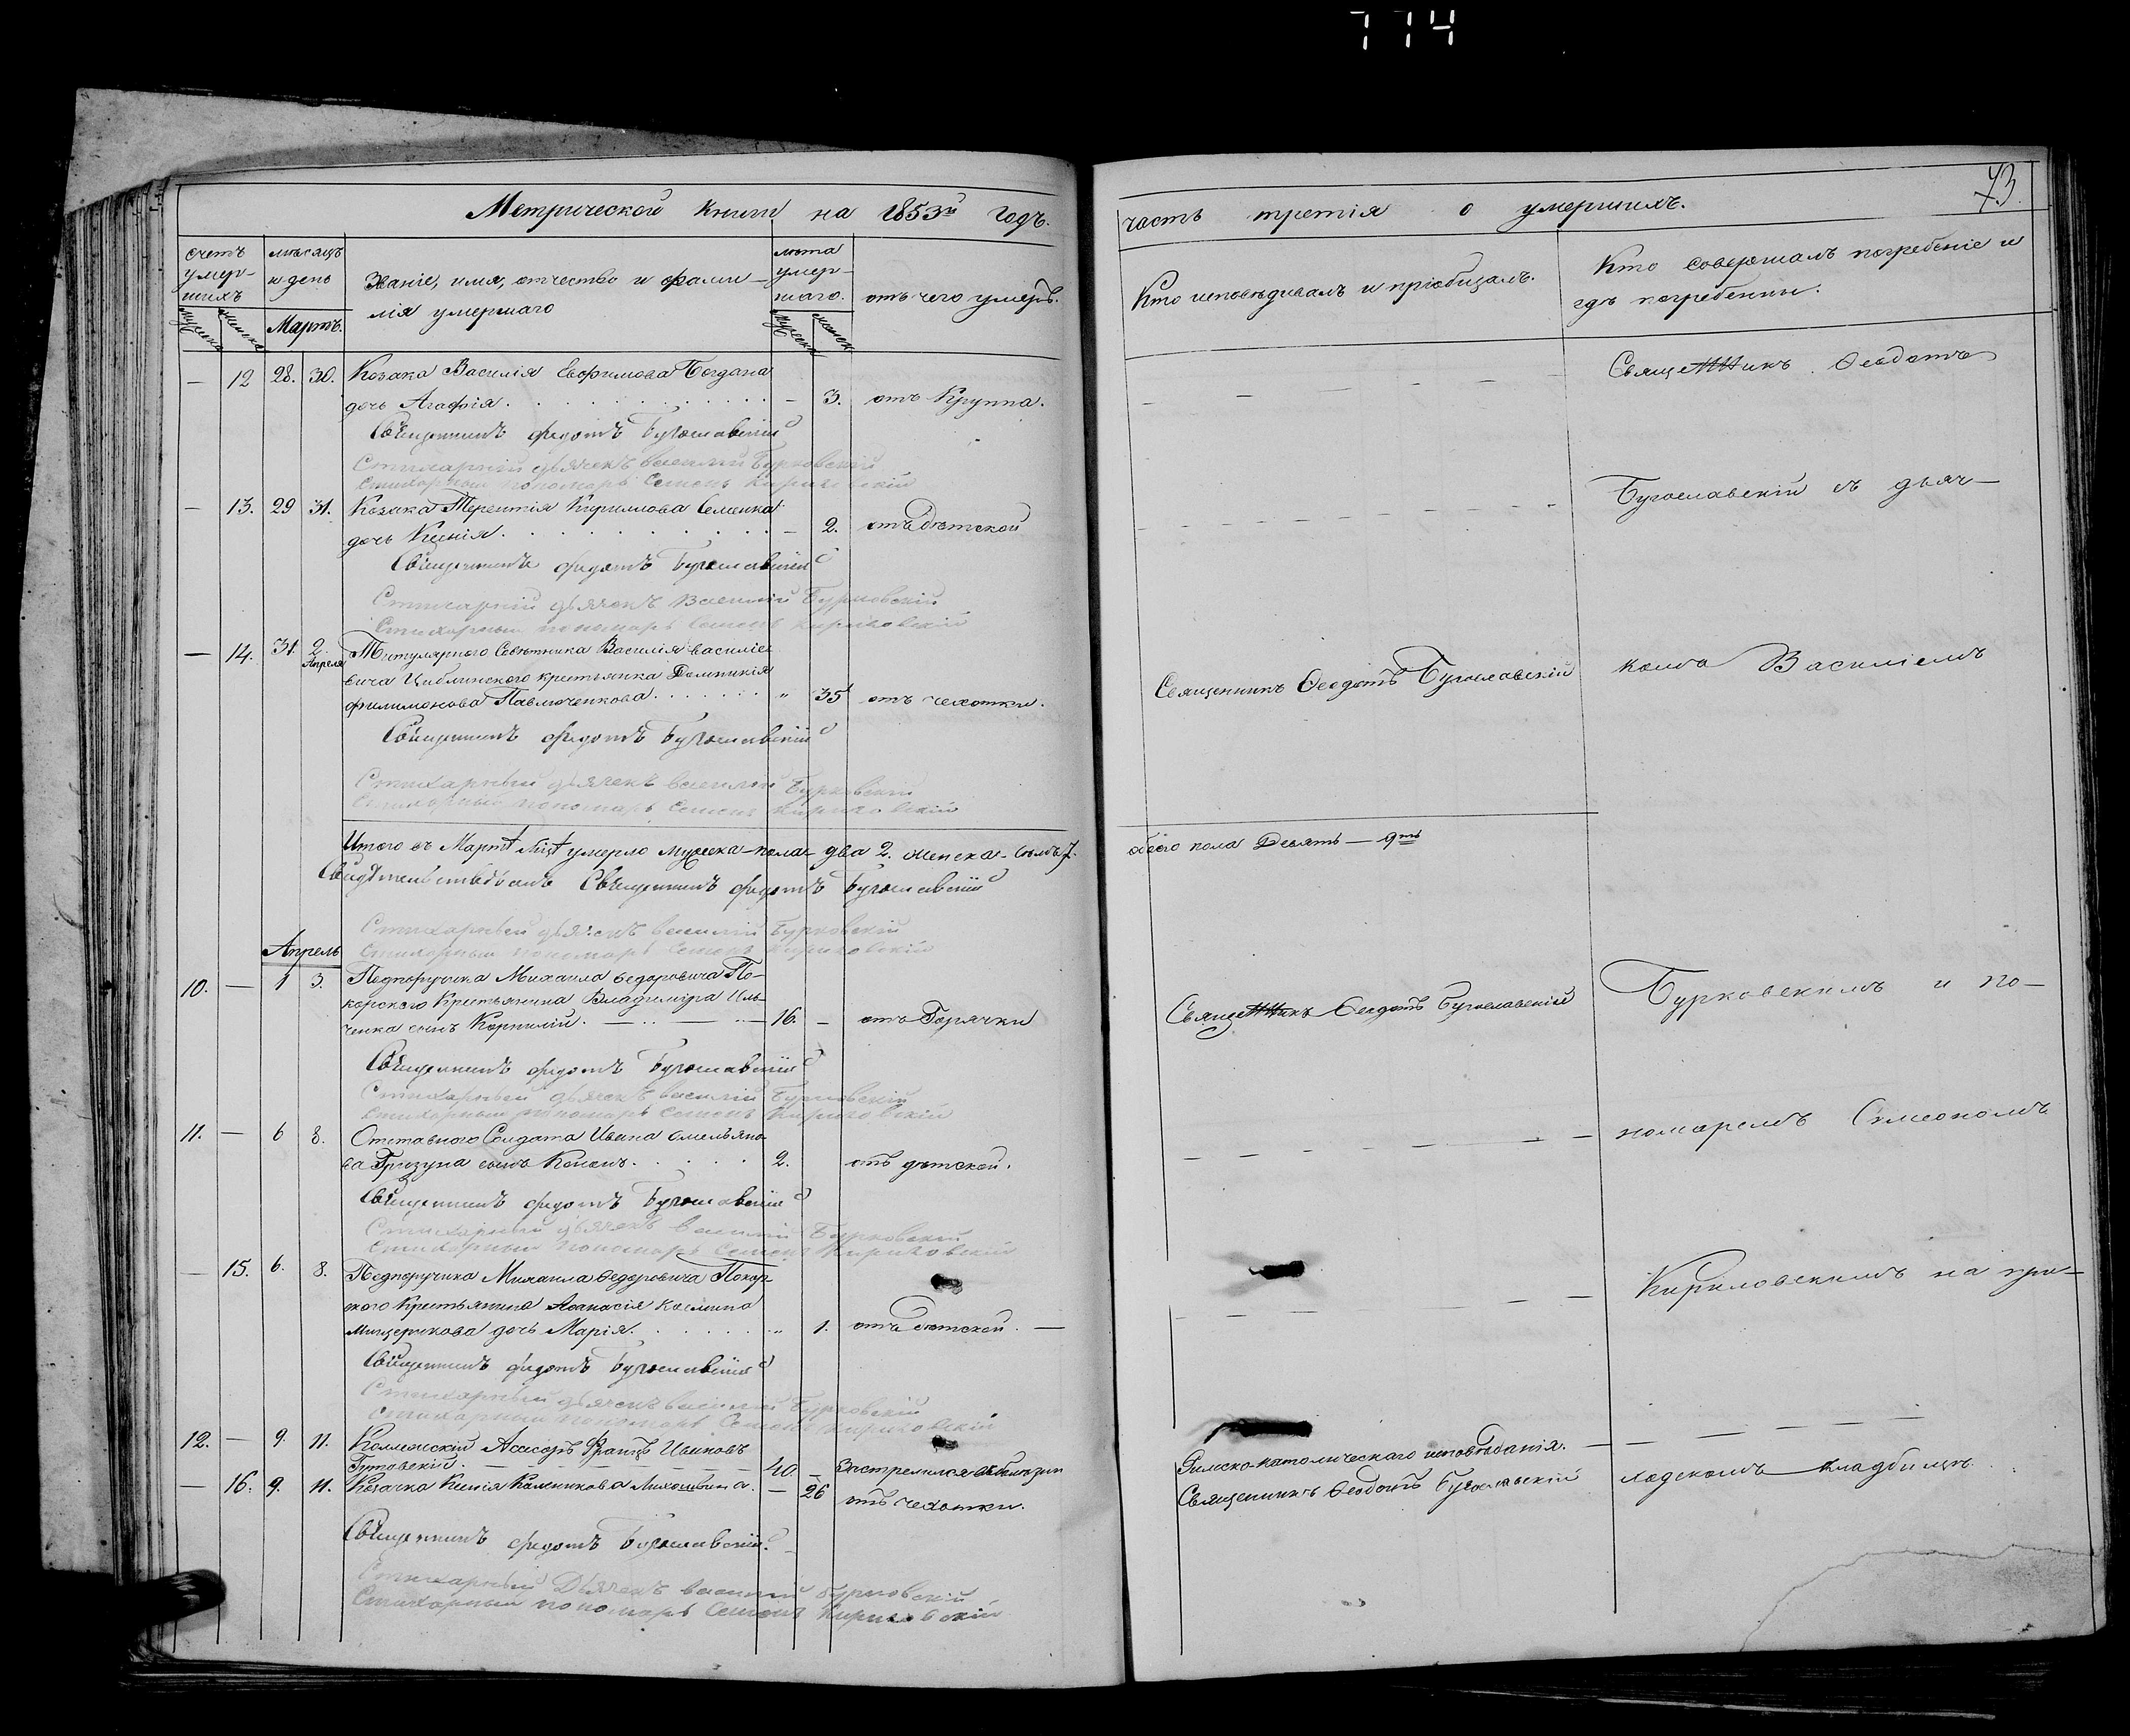 774
Метрической книги на 1853й годъ.
счетъ умер-шихъ
мѣсяцъ и день
Званіе, имя, отчество и фами-
лія умершаго
лѣта умер-шаго.
отъ чего умеръ.
мужеска
женска
Мартъ.
мужеска
женск
— 12 28. 30. Козака Василія Евфимова Богдана
дочь Агафія. — 3. отъ Круппа.
Священникъ Федотъ Бугославскій
Стихарный дьячекъ Василій Бурковскій
Стихарный пономарь Семенъ Кириловскій
— 13. 29 31. Козака Терентія Кирилова Семенка
дочь Ксенія. — 2. отъ дѣтской
Священникъ Федотъ Бугославскій
Стихарный дьячекъ Василій Бурковскій
Стихарный пономарь Семенъ Кириловскій
— 14. 31. 2. Апреля Титулярного Совѣтника Василія Василіе-
вича Циблинского крестьянка Домникія
Филимонова Павлюченкова. „ 35 отъ чехотки.
Священникъ Федотъ Бугославскій
Стихарный дьячекъ Василій Бурковскій
Стихарный пономарь Семенъ Кириловскій
Итого въ Мартѣ умерло мужеска-пола два 2. женска-семь 7.
Священникъ Федотъ Бугославскій
Стихарный дьячекъ Василій Бурковскій
Апрель
Стихарный пономарь Семенъ Кириловскій
10. — 1 3. Подпоручика Михаила Федоровича По-
корского Крестьянина Владиміра Иль-
ченка сынъ Корнилій. 16. — отъ Горячки
Священникъ Федотъ Бугославскій
Стихарный дьячекъ Василій Бурковскій
Стихарный пономарь Семенъ Кириловскій
11. — 6 8. Отставного Солдата Ивана Омельяно-
ва Гризуна сынъ Кононъ. 2. отъ дѣтской.
Священникъ Федотъ Бугославскій
Стихарный дьячекъ Василій Бурковскій
Стихарный пономарь Семенъ Кириловскій
— 15. 6. 8. Подпоручика Михаила Федоровича Покор-
ского Крестьянина Афанасія Космина
Мищерикова дочь Марія. „ 1. отъ дѣтской. —
Священникъ Федотъ Бугославскій
Стихарный дьячекъ Василій Бурковскій
Стихарный пономарь Семенъ Кириловскій
12. — 9. 11. Коллежскій Асессоръ Францъ Ивановъ
Гутовскій. 40. — Застрелился
— 16. 9. 11. Козачка Ксенія — 26 отъ чехотки.
Священникъ Федотъ Бугославскій.
Стихарный Дьячекъ Василій Бурковскій
Стихарный пономарь Семенъ Кириловскій
73.
часть третія о умершихъ.
Кто исповѣдивалъ и пріобщалъ.
Кто совершалъ погребеніе и
гдѣ погребенны.
Священникъ Феодотъ
Бугославскій съ дьяч-
Священникъ Феодотъ Бугославскій
комъ Василіемъ
обоего пола Девять — 9ть
Священникъ Феодотъ Бугославскій
Бурковскимъ и по-
номаремъ Симеономъ
Кириловскимъ на при-
Римско-католическаго исповѣданія. —
Священникъ Феодотъ Бугославскій
ходскомъ кладбищѣ.